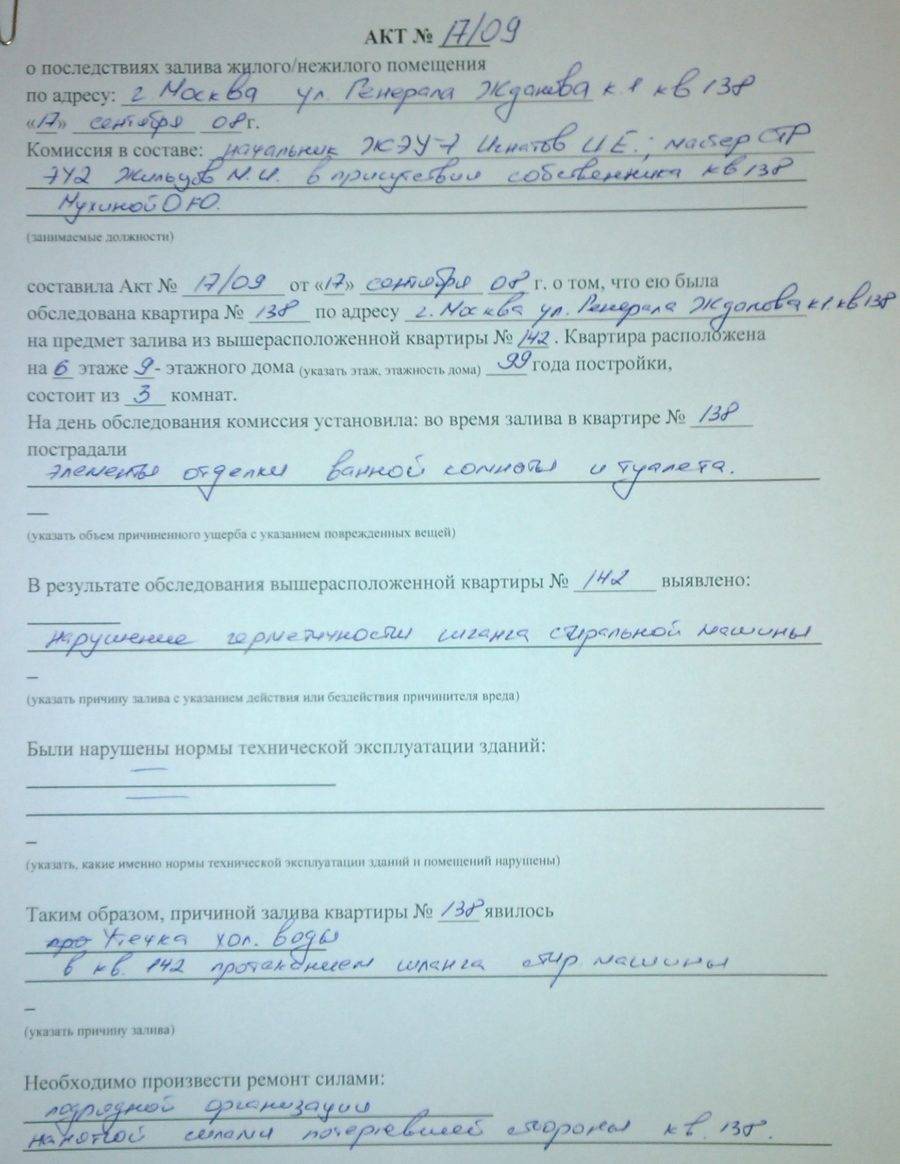 АКТ № 17/09
о последствиях залива жилого/нежилого помещения
по адресу: г. Москва ул. Генерала Жданова к.1 кв 138
«17» сентября 08 г.
Комиссия в составе: начальник ЖЭУ-7 Игнатов И.Е.; мастер СТР
ЭУ2 Жильцов М.И. в присутствии собственника кв 138
Мухиной О.Ю.
(занимаемые должности)
составила Акт № 17/09 от «17» сентября 08 г. о том, что ею была
обследована квартира № 138 по адресу г. Москва ул. Генерала Жданова к1. кв 138
на предмет залива из вышерасположенной квартиры № 142. Квартира расположена
на 6 этаже 9- этажного дома (указать этаж, этажность дома) 99 года постройки,
состоит из 3 комнат.
На день обследования комиссия установила: во время залива в квартире № 138
пострадали
элементы отделки ванной комнаты и туалета.
(указать объем причиненного ущерба с указанием поврежденных вещей)
В результате обследования вышерасположенной квартиры № 142 выявлено:
нарушение герметичности шланга стиральной машины
(указать причину залива с указанием действия или бездействия причинителя вреда)
Были нарушены нормы технической эксплуатации зданий:
(указать, какие именно нормы технической эксплуатации зданий и помещений нарушены)
Таким образом, причиной залива квартиры № 138 явилось
утечка хол. воды
в кв. 142 протеканием шланга стир машины
(указать причину залива)
Необходимо произвести ремонт силами:
подрядной организации
нанятой силами потерпевшей стороны кв. 138.